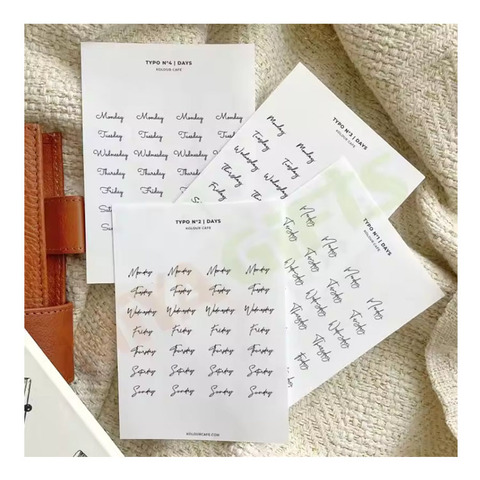 TYPO N°4 | DAYS
KOLOUR CAFE
Monday Monday Monday Monday
Tuesday Tuesday Tuesday Tuesday
Wednesday Wednesday Wednesday
Thursday Thursday Thursday
Friday Friday
TYPO N°3 | DAYS
KOLOUR CAFE
Monday Monday
Tuesday Tuesday
Wednesday Wednesday
Thursday
TYPO N°2 | DAYS
KOLOUR CAFE
Monday Monday Monday Monday
Tuesday Tuesday Tuesday Tuesday
Wednesday Wednesday Wednesday Wednesday
Friday Friday Friday Friday
Thursday Thursday Thursday Thursday
Saturday Saturday Saturday Saturday
Sunday Sunday Sunday Sunday
KOLOURCAFE.COM
TYPO N°1 | DAYS
KOLOUR CAFE
Monday Monday Monday Monday
Tuesday Tuesday Tuesday Tuesday
Wednesday Wednesday Wednesday
Thursday Thursday